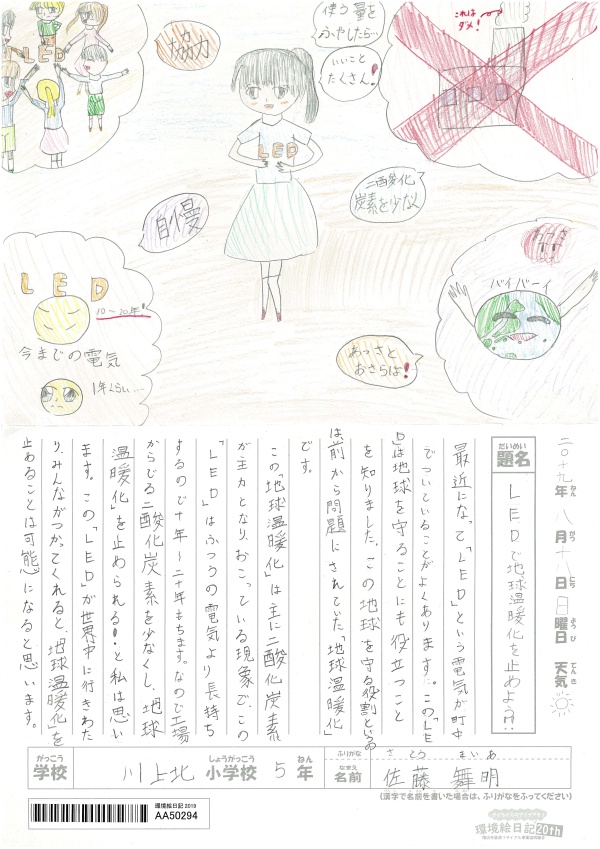 LED
協力
使う量を
ふやしたら…
いいこと
たくさん!
これは
ダメ!
LED
自慢
二酸化
炭素を少なく
LED
10～20年!
今までの電気
1年くらい…
あつさ
バイバーイ
あっさと
おさらば!
二〇十九年 八月 十八日 日曜日 天気
ねん がつ にち ようび てんき
だいめい
題名
LEDで地球温暖化を止めよう!!
最近になって「LED」という電気が町中
でついていることがよくあります。この「LE
D」は地球を守ることにも役立つこと
を知りました。この地球を守る役割というの
は前から問題にされていた「地球温暖化」
です。
この「地球温暖化」は主に二酸化炭素
が主力となり、おこっている現象で、この
「LED」はふつうの電気より長持ち
するので十年～二十年もちます。なので工場
からでる二酸化炭素を少なくし、地球
温暖化」を止められる!と私は思い
ます。この「LED」が世界中に行きわた
り、みんながつかってくれると、地球温暖化を
止めることは可能になると思います。
がっこう
学校
川上北
しょうがっこう
小学校
5
ねん
年
ふりがな
さとう まいあ
なまえ
名前
佐藤 舞明
(漢字で名前を書いた場合は、ふりがなをふってください)
環境絵日記 2019
AA50294
環境絵日記20th